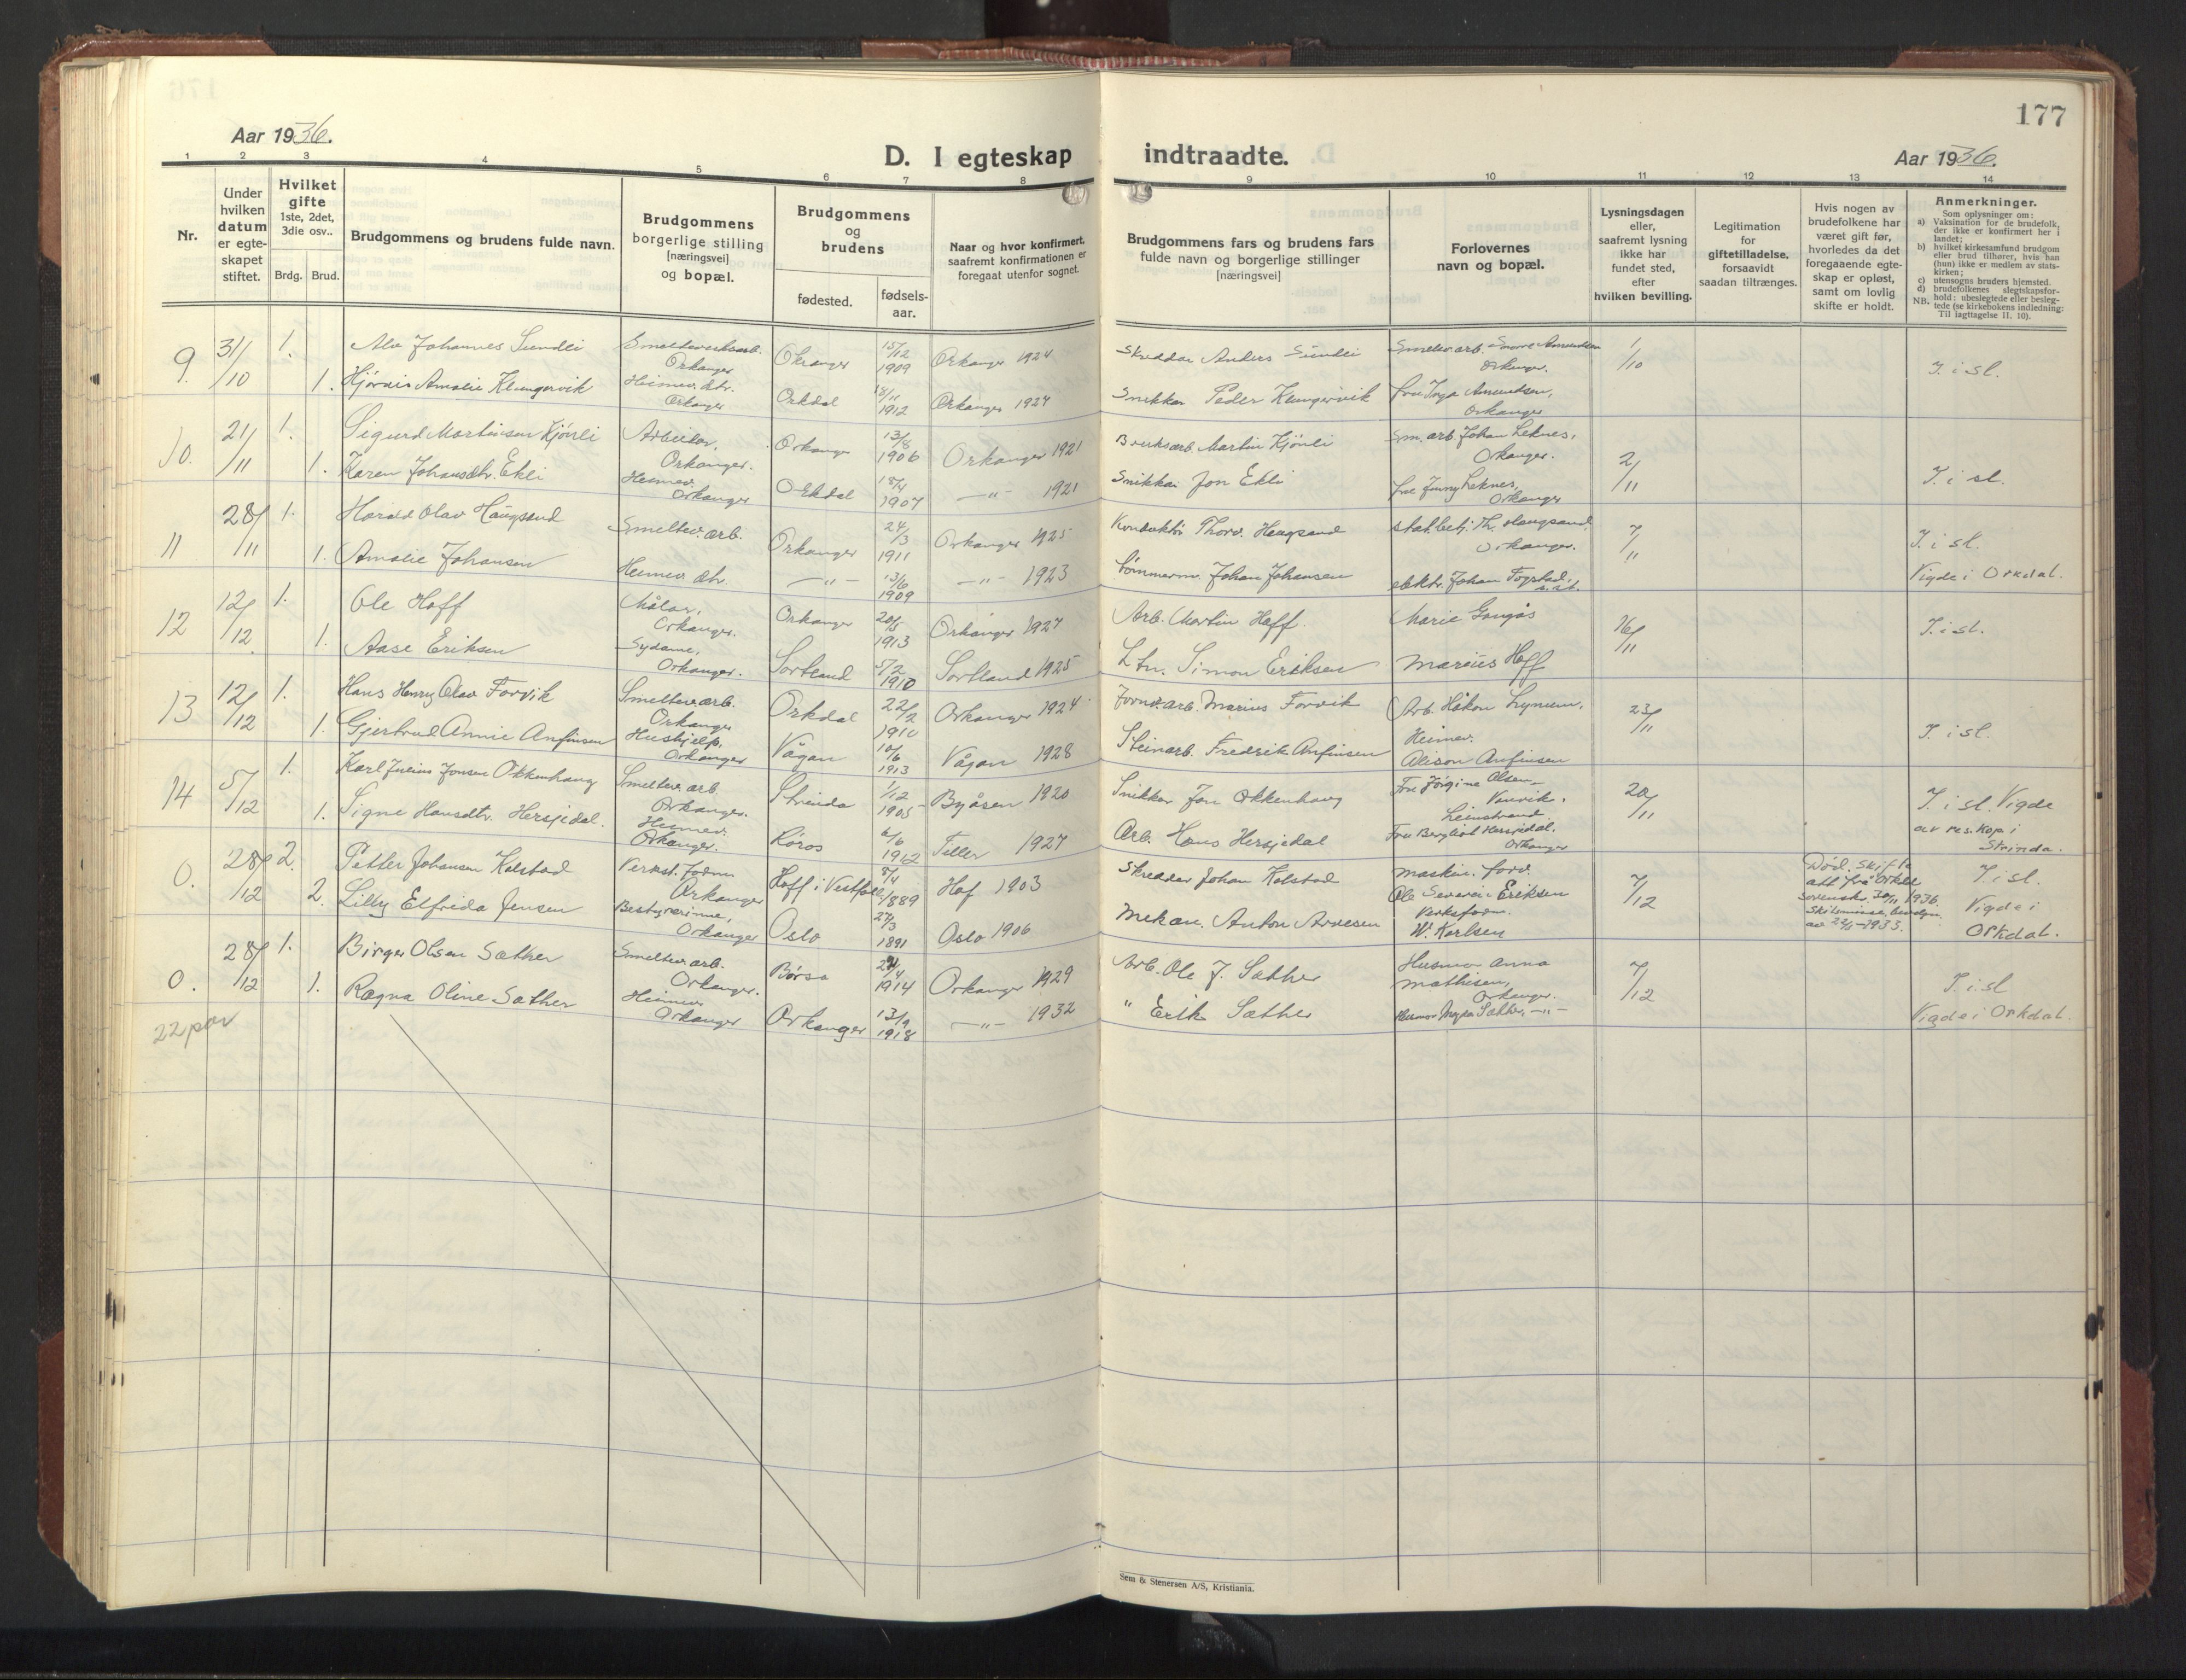 177
Aar 1936.
D. I egteskap indtraadte.
Aar 1936.
1 2 3 4 5 6 7 8 9 10 11 12 13 14
Nr.
Under hvilken datum er egteskapet stiftet.
Hvilket gifte
1ste, 2det, 3die osv..
Brdg. Brud.
Brudgommens og brudens fulde navn.
Brudgommens borgerlige stilling [næringsvei] og bopæl.
Brudgommens og brudens
fødested.
fødsels-aar.
Naar og hvor konfirmert, saafremt konfirmationen er foregaat utenfor sognet.
Brudgommens fars og brudens fars fulde navn og borgerlige stillinger [næringsvei]
Forlovernes navn og bopæl.
Lysningsdagen eller, saafremt lysning ikke har fundet sted, efter hvilken bevilling.
Legitimation for giftetilladelse, forsaavidt saadan tiltrænges.
Hvis nogen av brudefolkene har været gift før, hvorledes da det foregaaende egteskap er opløst, samt om lovlig skifte er holdt.
Anmerkninger.
Som oplysninger om:
a) Vaksination for de brudefolk, der ikke er konfirmert her i landet;
b) hvilket kirkesamfund brudgom eller brud tilhører, hvis han (hun) ikke er medlem av statskirken;
c) utensogns bruders hjemsted.
d) brudefolkenes slegtskapsforhold: ubeslegtede eller beslegtede (se kirkebokens indledning: Til iagttagelse II. 10).
NB.
9. 31/10 1. Alv Johannes Sundli Smelteverksarb. Orkanger Okranger 15/12 1909 Orkanger 1924 Skreddar Anders Sundli Smeltev.arb. Amundsen Orkanger. 1/10 J. i sl.
1. Hjørdis Amalie Klungervik Heimev. dtr. Orkanger Orkdal 18/11 1912 Orkanger 1927 Snekkar Peder Klungervik fru Inga Amundsen, Orkanger
10. 21/11 1. Sigurd Martinsen Kjønli Arbeider, Orkanger. Orkanger 13/8 1906 Orkanger 1921 Bruksarb. Martin Kjønli Sm. arb. Johan Leknes, Orkanger. 2/11 J. i sl.
1. Karen Johansdtr. Ekli Heimev. Orkanger Orkdal 18/4 1907 —"— 1921 Snikkar Jon Ekli fru Jenny Leknes, Orkanger
11 28/11 1. Harald Olav Haugsand Smeltev. arb. Orkanger 24/3 1911 Orkanger 1925 Konduktør Thorv. Haugsand stat.betj. Th. Haugsand, Orkanger. 7/11 J. i sl.
1. Amalie Johansen Heimev. dtr. —"— 13/6 1909 —"— 1923 Tømmerm. Johan Johansen elektr. Johan Fogstad, s. st. Vigde i Orkdal.
12 12/12 1. Ole Hoff Målar, Orkanger. Orkanger 20/5 1913 Orkanger 1927 Arb. Martin Hoff. Marie Gangås 16/11 J. i sl.
1. Aase Eriksen Sydame, Orkanger. Sortland 5/2 1910 Sortland 1925 Simon Eriksen Marius Hoff
13 12/12 1. Hans Henry Olav Forvik Smeltev. arb. Orkanger Orkdal 22/2 1910 Orkanger 1924 Jernv.arb. Marius Forvik Arb. Håkon Lynum, 23/11 J. i sl.
1. Gjertrud Annie Anfinsen Hushjelp, Orkanger Vågan 10/6 1913 Vågan 1928 Steinarb. Fredrik Anfinsen Heimev. Alison Anfinsen
14 5/12 1. Karl Julius Jonsen Okkenhaug Smeltev. arb. Orkanger. Strinda 1/12 1905 Byåsen 1920 Snikkar Jon Okkenhaug Fru Jørgine Olsen, Leinstrand. 20/11 J. i sl. Vigde av res. kap i Strinda.
1. Signe Hansdtr. Hersjedal. Heimev. Orkanger. Røros 6/6 1912 Tiller 1927 Arb. Hans Hersjedal Fru Bergljot Hersjedal. Orkanger
0. 28/12 2. Petter Johansen Kolstad Verkst. formn Orkanger Hoff i Vestfold 8/4 1889 Hof 1903 Skreddar Johan Kolstad Maskin. forv. Ole Severin Eriksen 7/12 Død. Skifte att. frå Orkdal sorenskr. 30/11 1936. J. i sl.
2. Lilly Elfrida Jensen Bestyrerinne, Orkanger Oslo 27/3 1891 Oslo 1906 Mekan. Anton Arvesen Verksform. W. Karlsen Skilsmisse, bevilgn. av 22/11-1933. Vigde i Orkdal.
0. 28/12 1. Birger Olsen Sæther Smeltev arb. Orkanger. Børsa 24/4 1914 Orkanger 1929 Arb. Ole J. Sæther Husmor Anna Mathisen, Orkanger. 7/12 J. i. sl
1. Ragna Oline Sæther Heimev Orkanger Orkanger 13/9 1918 —"— 1932 " Erik Sæther Husmor Magda Sæther, —"— Vigde i Orkdal.
22 par
Sem & Stenersen A/S, Kristiania.